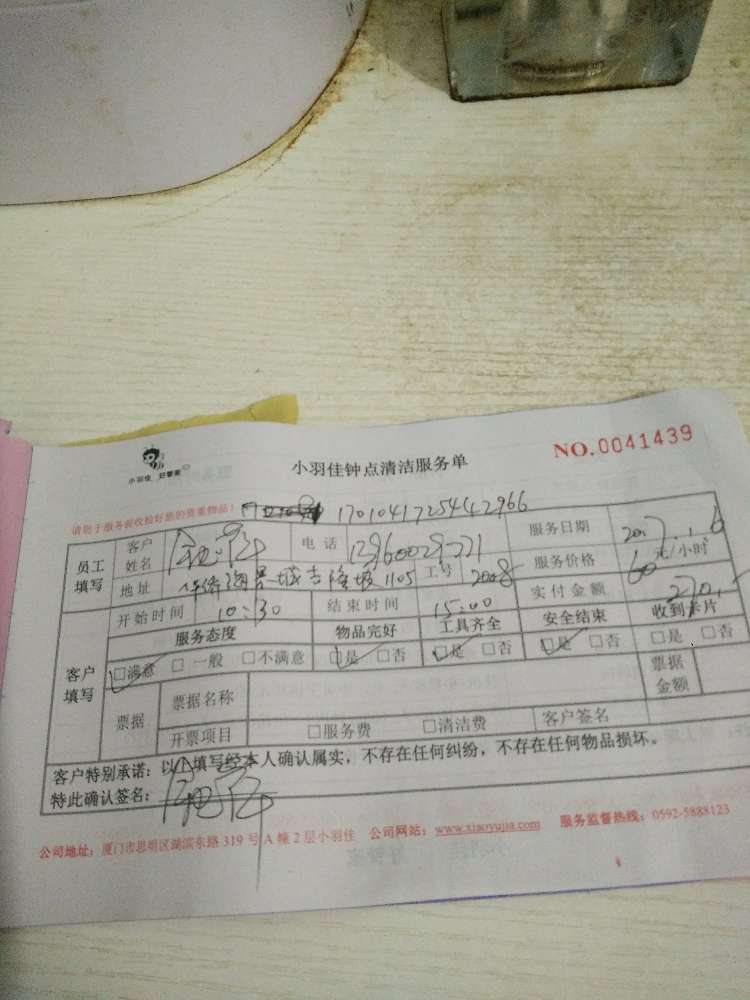 小羽佳 好管家
小羽佳钟点清洁服务单
NO.0041439
请您于服务前收检好您的贵重物品!
1701041725442966
员工填写 客户姓名 电话 服务日期 2017.1.6
地址 华侨海景城吉隆坡1105 工号 2008 服务价格 60元/小时
开始时间 10:30 结束时间 15:00 实付金额 270.-
客户填写 服务态度 物品完好 工具齐全 安全结束 收到卡片
□满意 □一般 □不满意 □是 □否 □是 □否 □是 □否 □是 □否
票据 票据名称 票据金额
开票项目 □服务费 □清洁费 客户签名
客户特别承诺:以上填写经本人确认属实,不存在任何纠纷,不存在任何物品损坏。
特此确认签名:
公司地址:厦门市思明区湖滨东路319号A幢2层小羽佳 公司网站:www.xiaoyujia.com 服务监督热线:0592-5888123